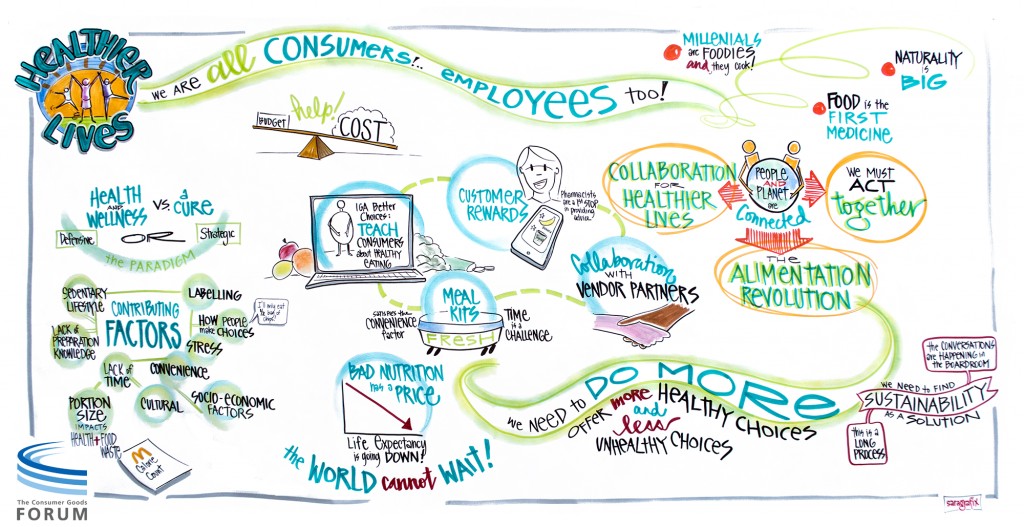 HEALTHIER
LIVES
WE ARE all CONSUMERS!.. EMPLOYEES TOO!
MILLENIALS
are FOODIES
and they cook!
NATURALITY
is
BIG
FOOD is the
FIRST
MEDICINE
help!
BUDGET
COST
HEALTH
AND
WELLNESS
VS.
a
CURE
Defensive
OR
Strategic
the PARADIGM
IGA Better
Choices:
TEACH
CONSUMERS
about HEALTHY
EATING
CUSTOMER
REWARDS
Pharmacists
are a 1st STOP
in providing
advice.
COLLABORATION
FOR
HEALTHIER
LIVES
PEOPLE
AND
PLANET
are
Connected
WE MUST
ACT
together
THE
ALIMENTATION
REVOLUTION
Collaboration
WITH
VENDOR PARTNERS
MEAL
KITS
FRESH
satisfies the
CONVENIENCE
factor
TIME
is a
CHALLENGE
CONTRIBUTING
FACTORS
SEDENTARY
LIFESTYLE
LABELLING
LACK of
PREPARATION
KNOWLEDGE
HOW PEOPLE
make CHOICES
I'll only eat
the bag of
chips!
STRESS
LACK of
TIME
CONVENIENCE
PORTION
SIZE
IMPACTS
HEALTH + FOOD
WASTE
CULTURAL
SOCIO-ECONOMIC
FACTORS
Calorie
Count
BAD NUTRITION
has a PRICE
Life Expectancy
is going DOWN!
the WORLD cannot WAIT!
WE NEED to DO MORE
OFFER more HEALTHY CHOICES
and
less
UNHEALTHY CHOICES
the CONVERSATIONS
are HAPPENING in
the BOARDROOM
WE NEED to FIND
SUSTAINABILITY
AS a SOLUTION
this is a
LONG
PROCESS
The Consumer Goods
FORUM
saragrafix